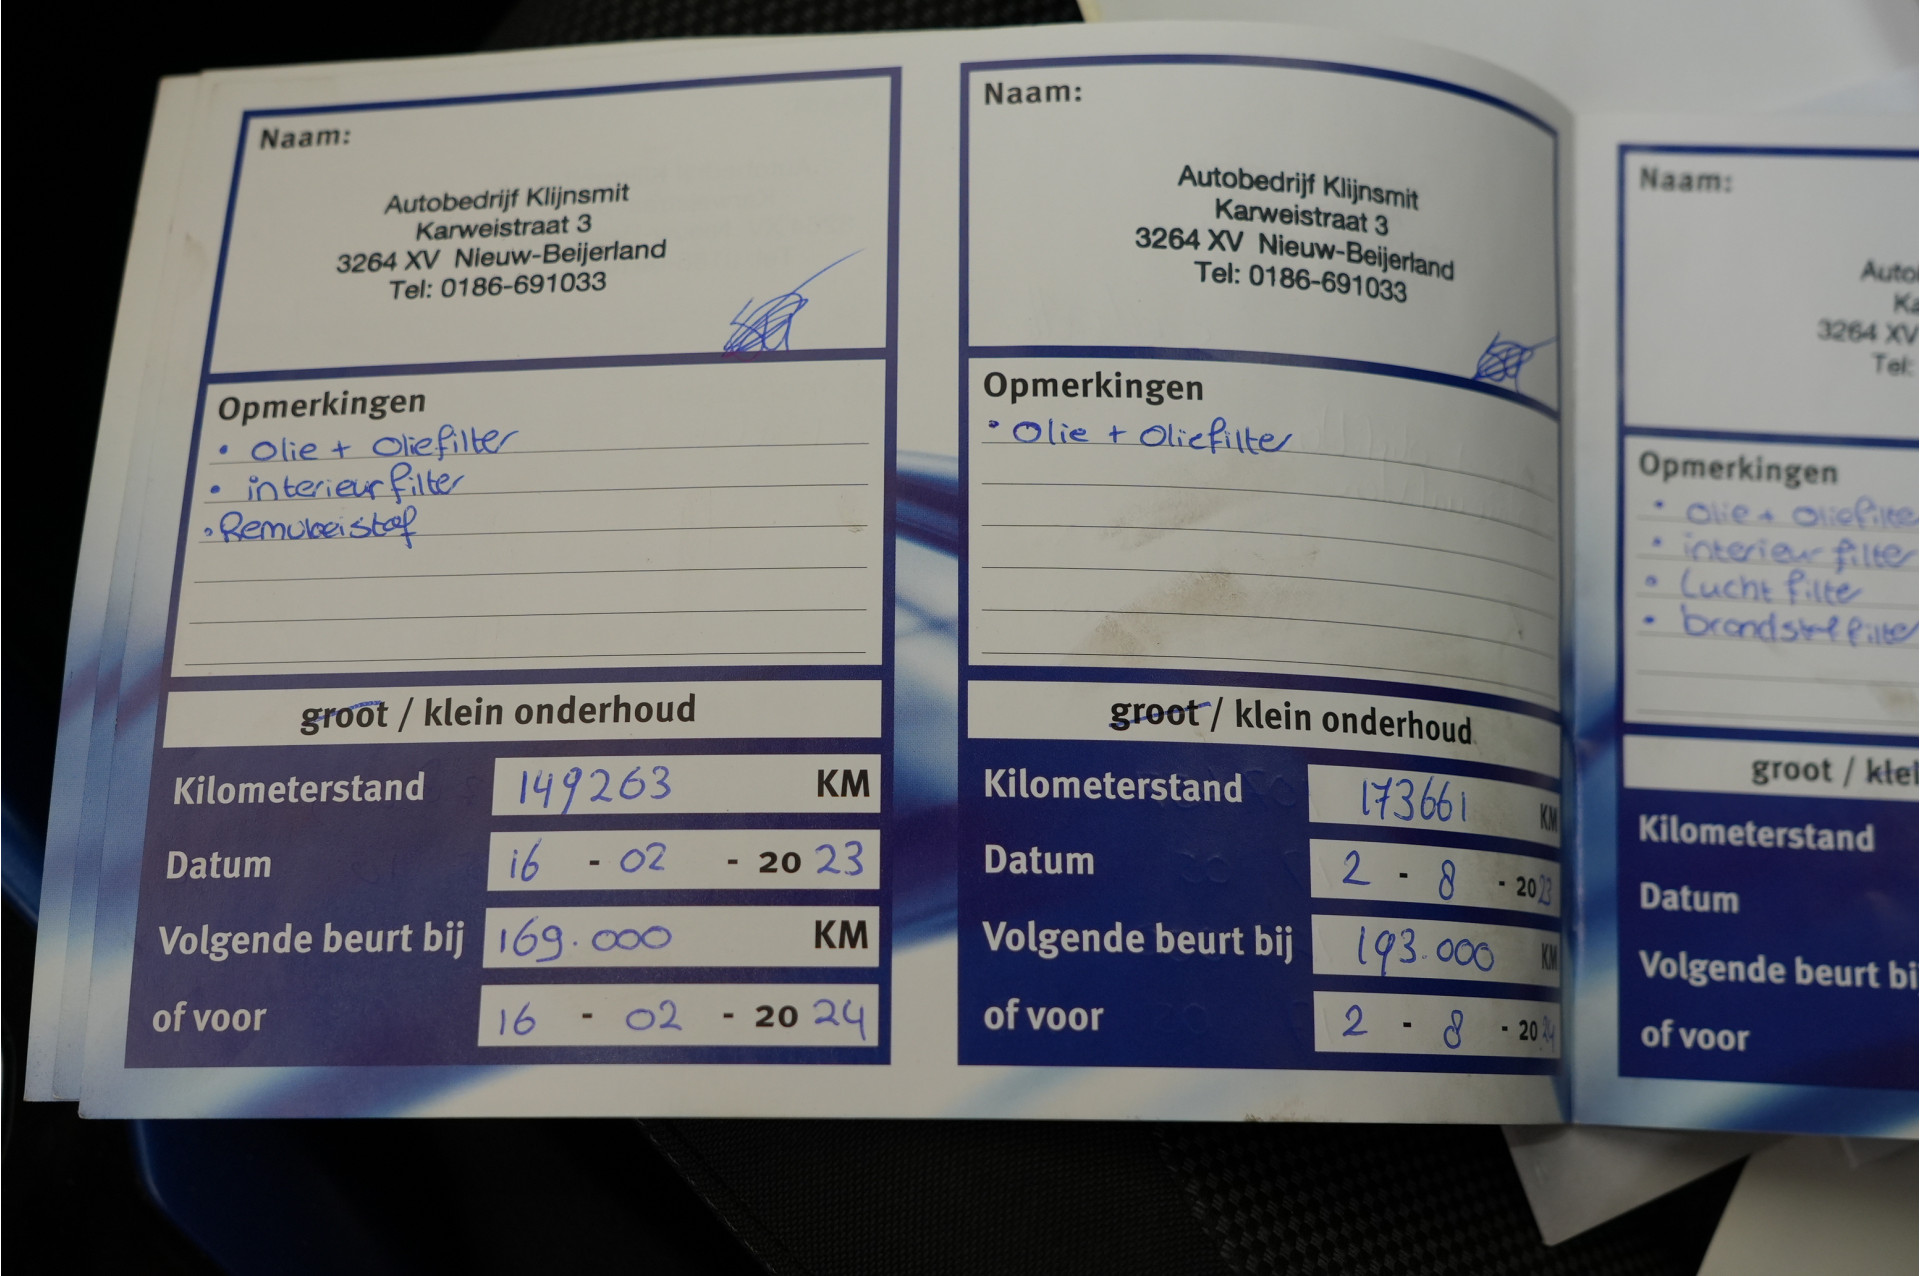 Naam:
Autobedrijf Klijnsmit
Karweistraat 3
3264 XV Nieuw-Beijerland
Tel: 0186-691033
Opmerkingen
• Olie + Oliefilter
• interieurfilter
• Remvloeistof
groot / klein onderhoud
Kilometerstand 149263 KM
Datum 16 - 02 - 20 23
Volgende beurt bij 169.000 KM
of voor 16 - 02 - 20 24
Naam:
Autobedrijf Klijnsmit
Karweistraat 3
3264 XV Nieuw-Beijerland
Tel: 0186-691033
Opmerkingen
• Olie + Oliefilter
groot / klein onderhoud
Kilometerstand 173661 KM
Datum 2 - 8 - 20 23
Volgende beurt bij 193.000 KM
of voor 2 - 8 - 20 24
Naam:
Auto
Ka
3264 XV
Tel:
Opmerkingen
• Olie + Oliefilter
• interieur filter
• Lucht filte
• brandstoffilter
groot / klei
Kilometerstand
Datum
Volgende beurt bi
of voor